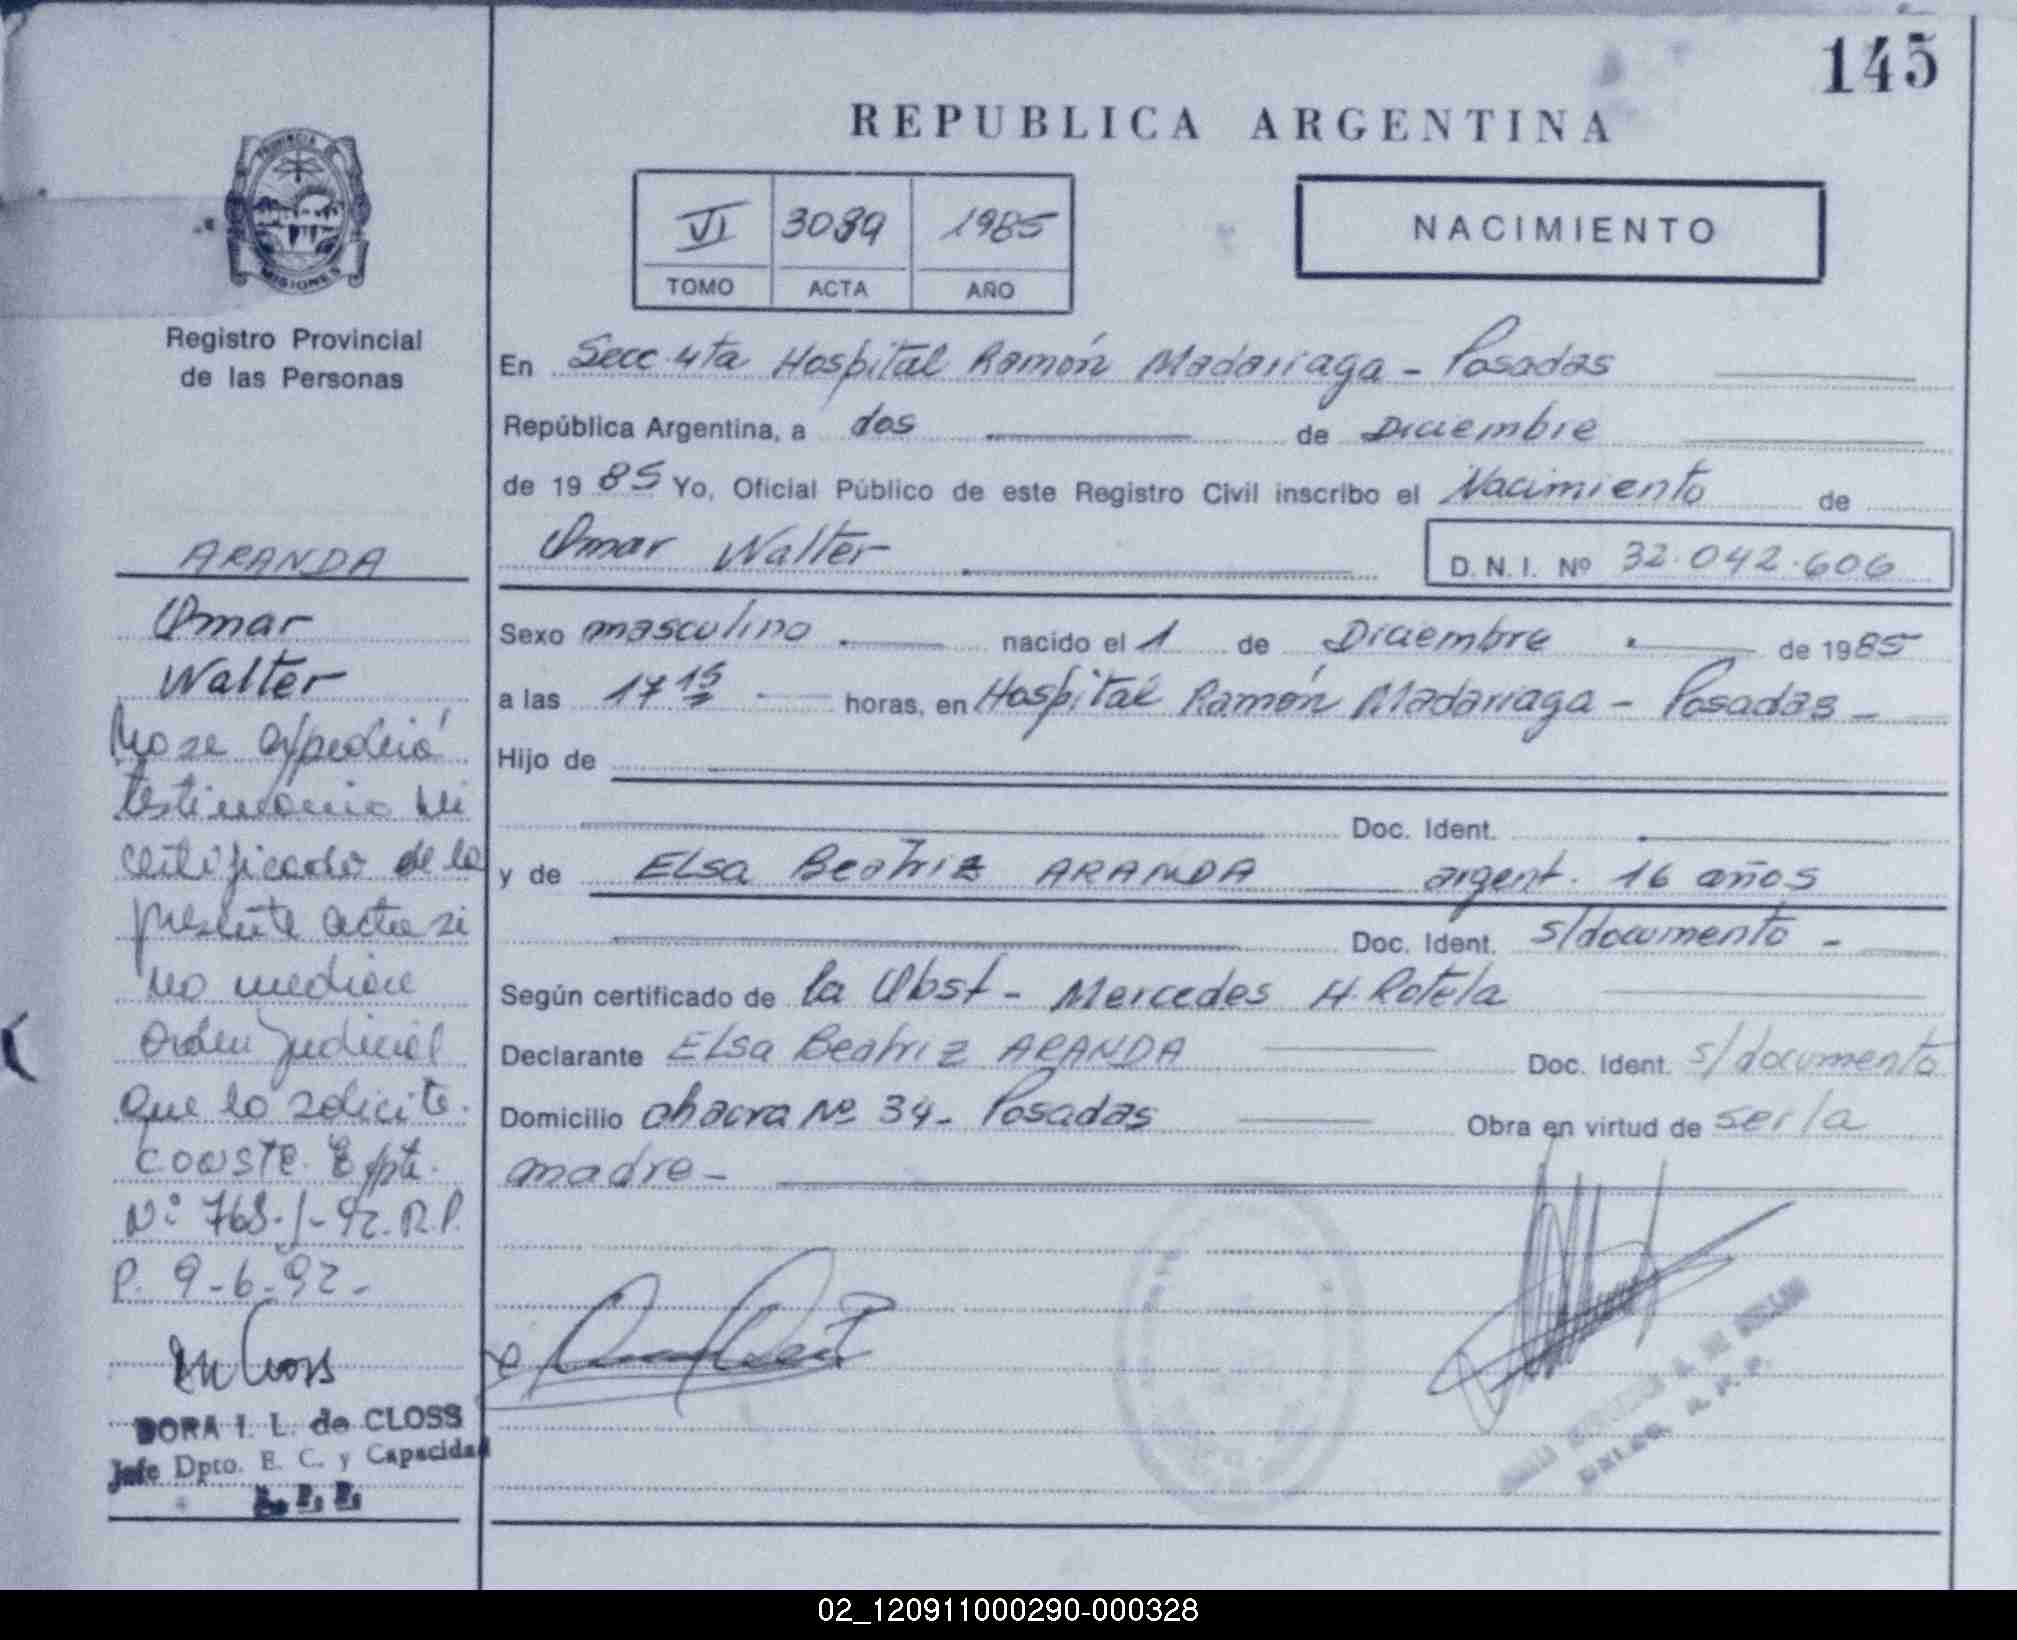 145
REPUBLICA ARGENTINA
PROVINCIA DE
MISIONES
VI 3039 1985
TOMO ACTA AÑO
NACIMIENTO
Registro Provincial
de las Personas
En Secc. 4ta Hospital Ramón Madariaga - Posadas
República Argentina, a dos de Diciembre
de 1985 Yo, Oficial Público de este Registro Civil inscribo el Nacimiento de
Omar Walter D.N.I. Nº 32.042.606
Sexo masculino nacido el 1 de Diciembre de 1985
a las 17 15 horas, en Hospital Ramón Madariaga - Posadas -
Hijo de
Doc. Ident.
y de ELSA Beatriz ARANDA argent. 16 años
Doc. Ident. s/documento -
Según certificado de la Obst - Mercedes H. Rotela
Declarante ELSA Beatriz ARANDA Doc. Ident. s/documento
Domicilio chacra Nº 34 - Posadas Obra en virtud de ser la
madre -
ARANDA
Omar
Walter
No se expedirá
testimonio ni
certificado de la
presente acta si
no mediare
orden judicial
que lo solicite.
Conste. Expte.
Nº 768-/-92. R.P.
P. 9-6-92-
DORA I. L. de CLOSS
Jefe Dpto. E. C. y Capacidad
R. P. P.
02_120911000290-000328